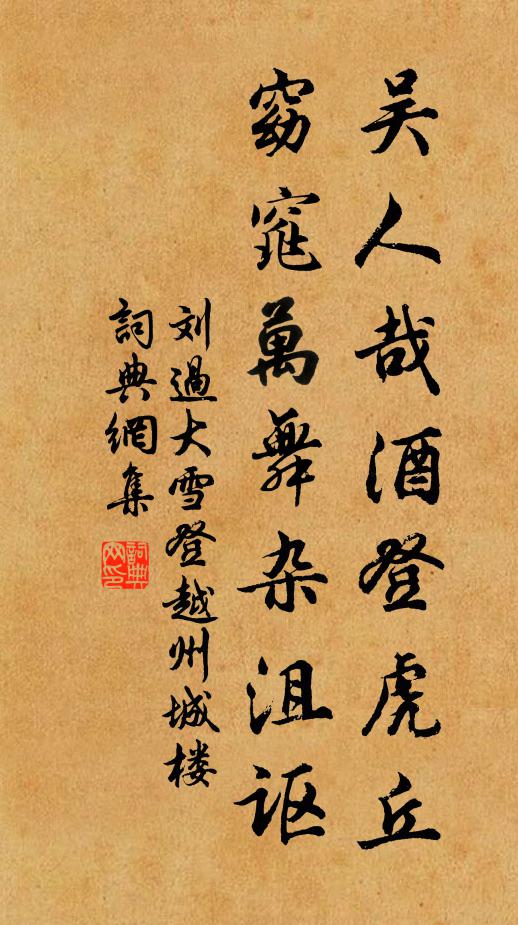 吴人哉酒登虎丘
窈窕萬舞杂沮讴
刘過大雪登越州城楼
詞典網集
詞典网印